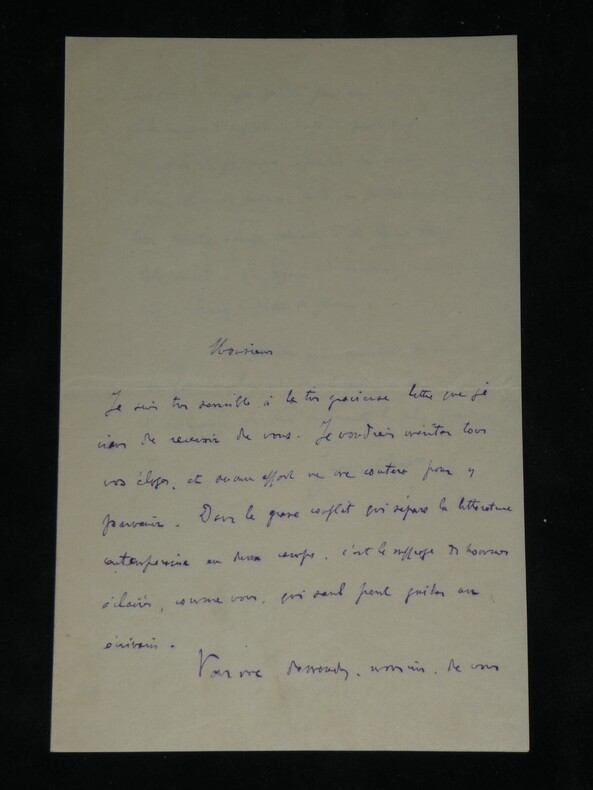 Monsieur
Je suis très sensible à la très gracieuse lettre que je
viens de recevoir de vous. Je voudrais mériter tous
vos éloges, et aucun effort ne me coûtera pour y
parvenir. Dans le grave conflit qui sépare la littérature
contemporaine en deux camps, c'est le suffrage d'hommes
éclairés, comme vous, qui seul peut guider un
écrivain.
Vous me demandez, monsieur, de vous